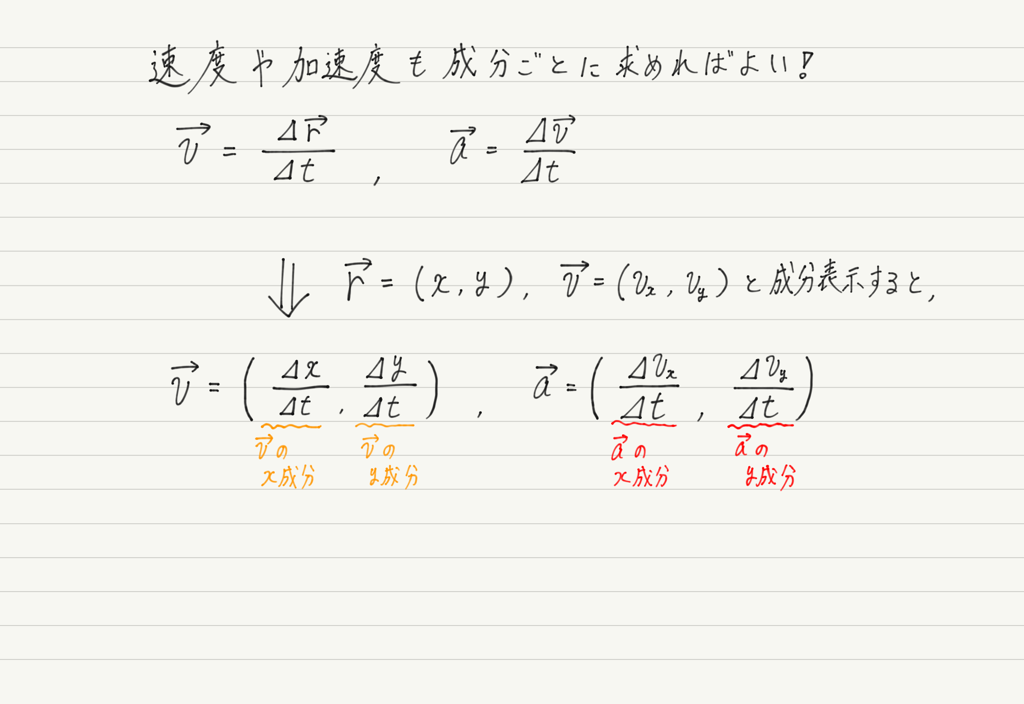 速度や加速度も成分ごとに求めればよい!
v⃗ = Δr⃗/Δt , a⃗ = Δv⃗/Δt
⇓ r⃗ = (x, y), v⃗ = (vₓ, v_y) と成分表示すると,
v⃗ = (Δx/Δt, Δy/Δt) , a⃗ = (Δvₓ/Δt, Δv_y/Δt)
v⃗の v⃗の a⃗の a⃗の
x成分 y成分 x成分 y成分